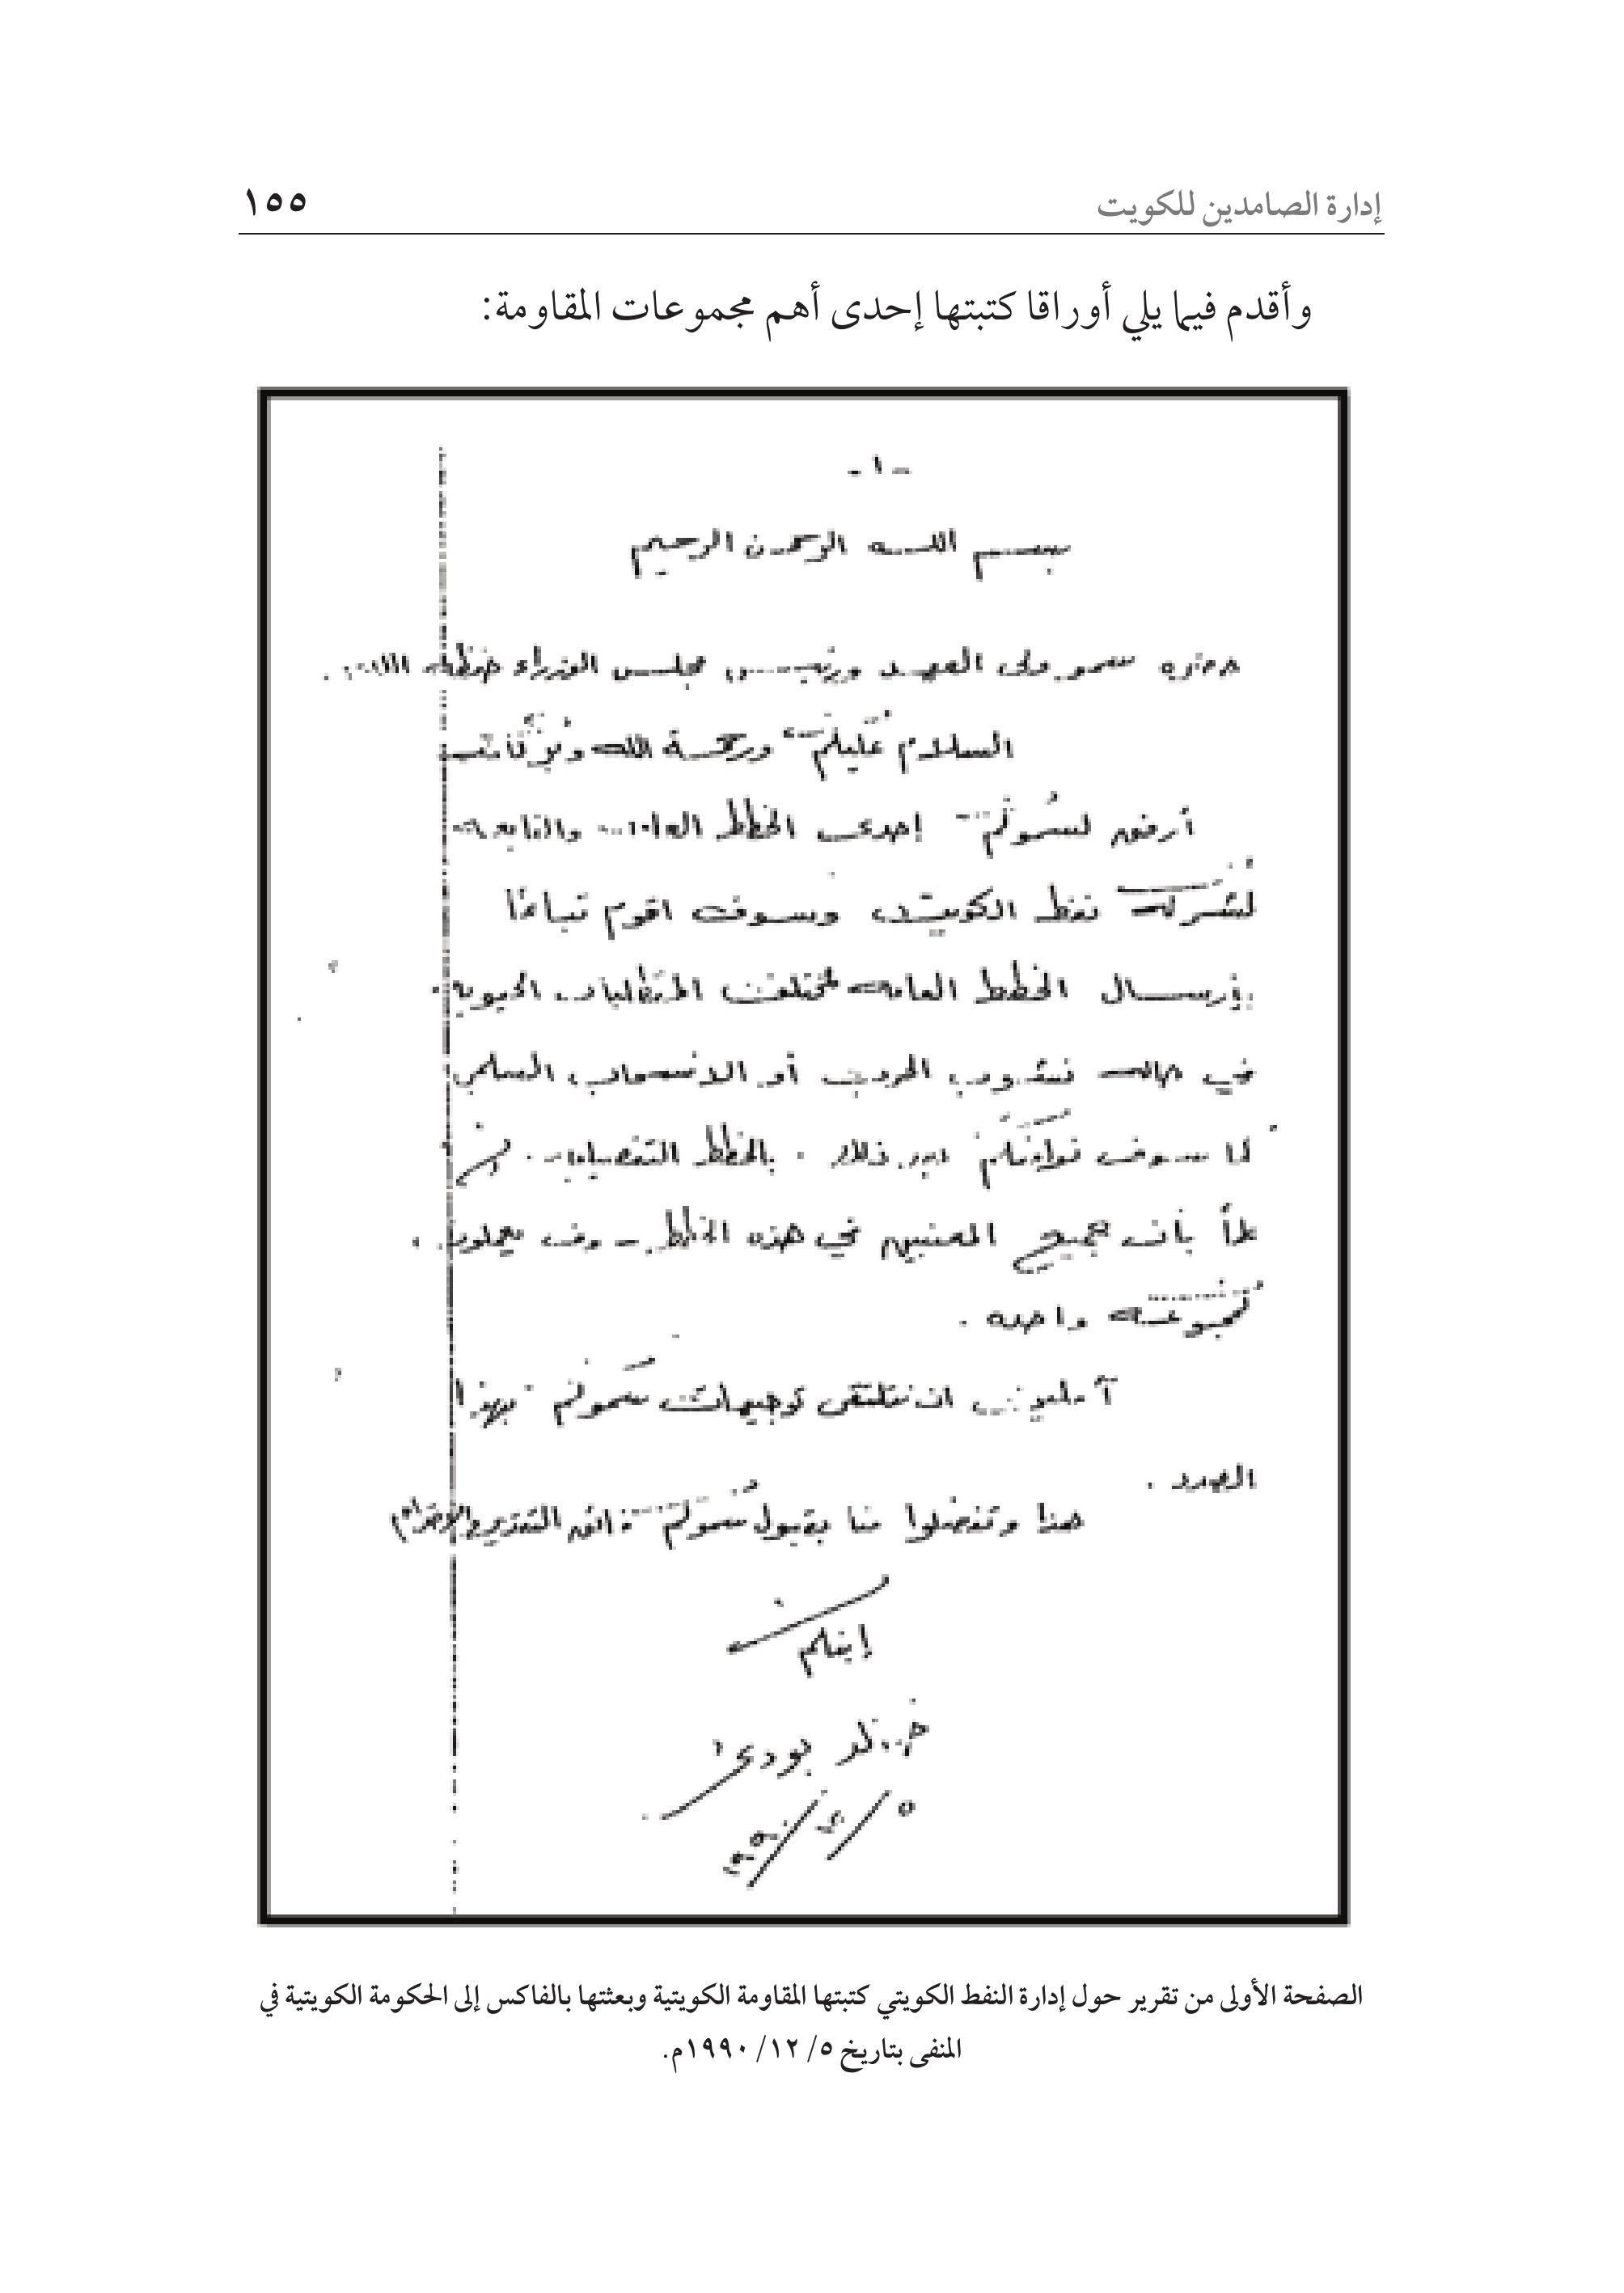 إدارة الصامدين للكويت ١٥٥
وأقدم فيما يلي أوراقا كتبتها إحدى أهم مجموعات المقاومة:
- ١ -
بسم الله الرحمن الرحيم
حضرة سمو ولي العهد ورئيس مجلس الوزراء حفظه الله .
السلام عليكم ورحمة الله وبركاته
أرفق لسموكم إحدى الخطط العامة والتابعة
لشركة نفط الكويت وسوف اقوم تباعاً
بإرسال الخطط العامة لمختلف المتطلبات الحيوية
في حالة نشوب الحرب أو الانسحاب السلمي
كما سوف نوافيكم بعد ذلك بالخطط التفصيلية .
علماً بأن جميع المعنيين في هذه الخطط سوف يعملون
كمجموعة واحدة .
آملين ان نتلقى توجيهات سموكم بهذا
الصدد .
هذا وتفضلوا منا بقبول سموكم فائق التقدير والاحترام
إبنكم
خالد بودي
٥/١٢/١٩٩٠
الصفحة الأولى من تقرير حول إدارة النفط الكويتي كتبتها المقاومة الكويتية وبعثتها بالفاكس إلى الحكومة الكويتية في
المنفى بتاريخ ٥/ ١٢/ ١٩٩٠م.